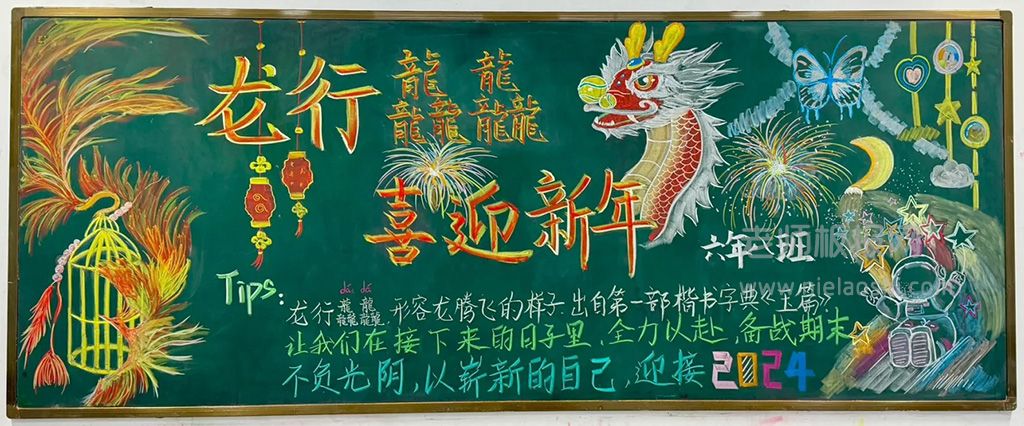 龙行龘龘
喜迎新年
六年 班
Tips:
dá dá
龙行龘龘,形容龙腾飞的样子.出自第一部楷书字典《玉篇》;
让我们在接下来的日子里、全力以赴、备战期末
不负光阴,以崭新的自己,迎接2024